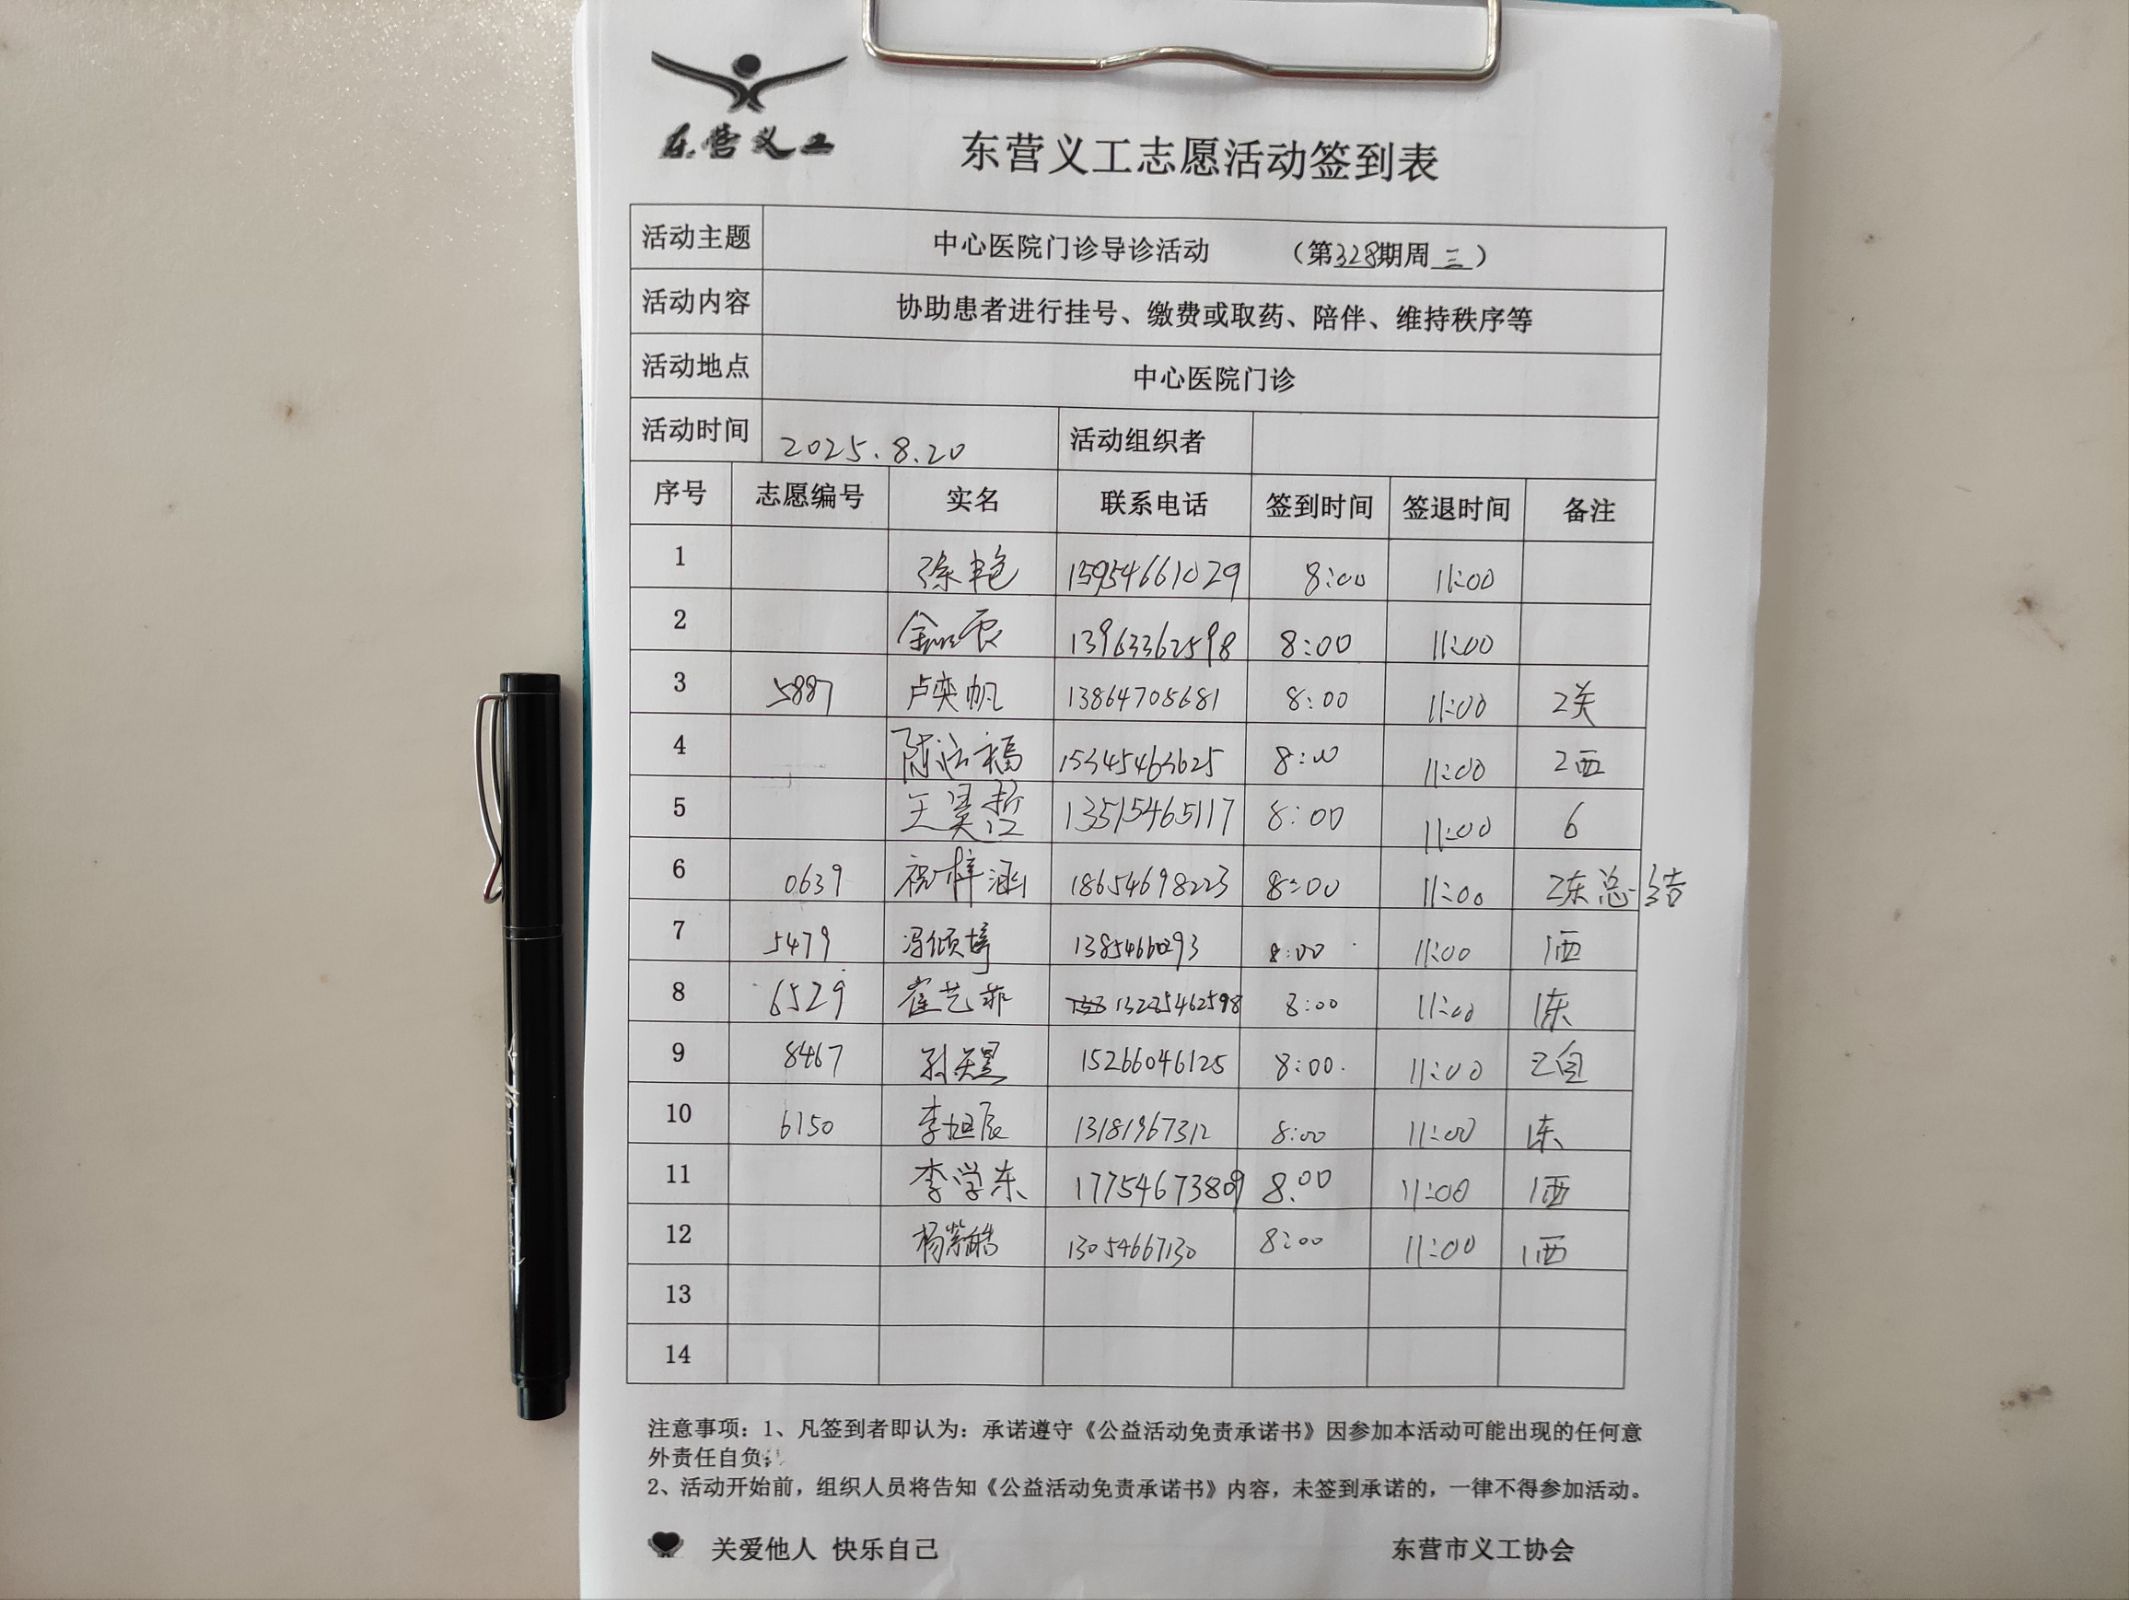 东营义工
东营义工志愿活动签到表
活动主题 中心医院门诊导诊活动 (第328期周三)
活动内容 协助患者进行挂号、缴费或取药、陪伴、维持秩序等
活动地点 中心医院门诊
活动时间 2025.8.20 活动组织者
序号 志愿编号 实名 联系电话 签到时间 签退时间 备注
1 徐艳 15954661029 8:00 11:00
2 13963362598 8:00 11:00
3 5887 卢奕帆 13864705681 8:00 11:00 2关
4 陈泓福 15345463625 8:00 11:00 2西
5 王昊哲 13515465117 8:00 11:00 6
6 0639 祝梓涵 18654698223 8:00 11:00 2东总结
7 5479 冯倾婷 13854660293 8:00 11:00 1西
8 6529 崔艺菲 13225462598 8:00 11:00 1东
9 8467 孙天昱 15266046125 8:00 11:00 2自
10 6150 李旭辰 13181967312 8:00 11:00 1东
11 李学东 17754673809 8:00 11:00 1西
12 杨紫皓 13054667130 8:00 11:00 1西
13
14
注意事项：1、凡签到者即认为：承诺遵守《公益活动免责承诺书》因参加本活动可能出现的任何意
外责任自负；
2、活动开始前，组织人员将告知《公益活动免责承诺书》内容，未签到承诺的，一律不得参加活动。
关爱他人 快乐自己 东营市义工协会